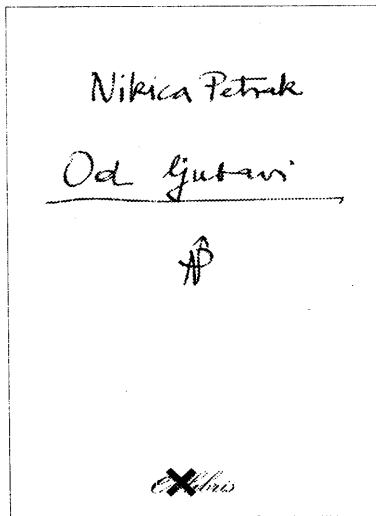 Nikica Petrak
Od ljubavi
NP
Ex libris